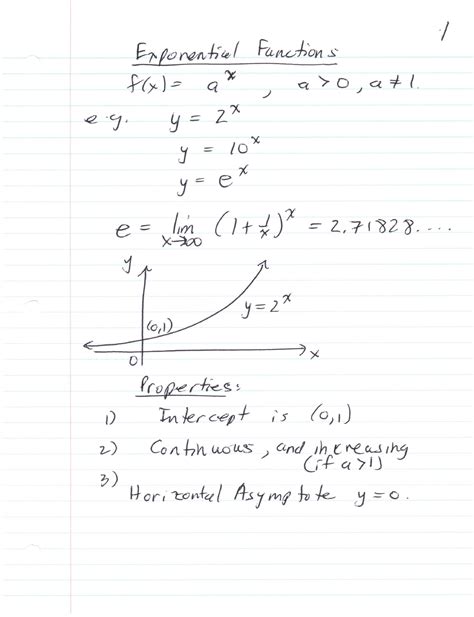 1
Exponential Functions
f(x) = a^x , a > 0, a ≠ 1.
e.g. y = 2^x
y = 10^x
y = e^x
e = lim x→∞ (1 + 1/x)^x = 2.71828....
y
y = 2^x
(0,1)
0 x
Properties:
1) Intercept is (0,1)
2) Continuous, and increasing
(if a>1)
3)
Horizontal Asymptote y=0.